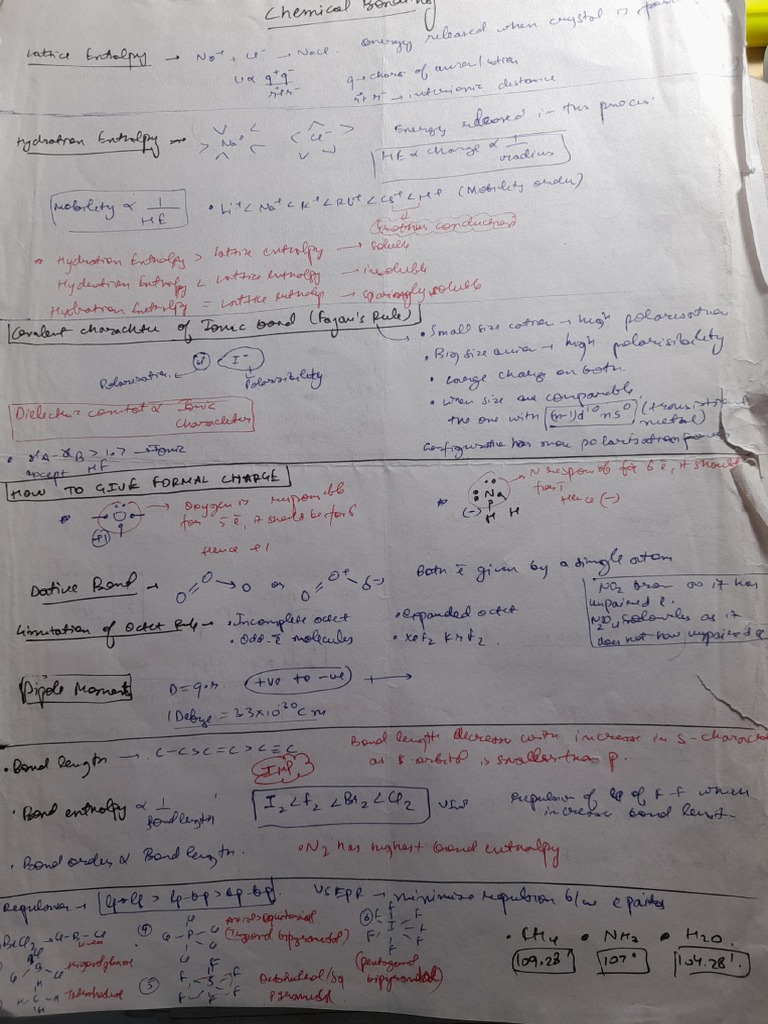 Chemical Bonding
Lattice Enthalpy → Na⁺ + Cl⁻ → NaCl. energy released when crystal is
U∝ q⁺q⁻ / r⁺r⁻ q → charge of anion/cation
r⁺ r⁻ → interionic distance
Hydration Enthalpy → Na⁺ Cl⁻ Energy released in this process.
HE ∝ charge ∝ 1/radius
Mobility ∝ 1/HE • Li⁺ < Na⁺ < K⁺ < Rb⁺ < Cs⁺ < H⁺ (Mobility order)
* Hydration Enthalpy > lattice enthalpy → soluble
Hydration Enthalpy < lattice enthalpy → insoluble
Hydration Enthalpy = lattice enthalpy → sparingly soluble
Covalent character of Ionic bond (Fajan's Rule)
• Small size cation → high polarisation
• Big size anion → high polarisibility
• Large charge on both.
• When size are comparable,
the one with (n-1)d¹⁰ ns⁰ (transition metal)
configuration has more polarisation power
I⁻
Polarisation Polarisibility
Dielectric constat ∝ Ionic
character
• xA - xB > 1.7 → Ionic
except HF
HOW TO GIVE FORMAL CHARGE
* O +1 → Oxygen is responsible
for 5 ē, it should be for 6
Hence +1
* Na (-) H H → N responsib for 6 ē, it should
for 5
Hence (-)
Dative Bond → O O → O or O O⁺ O⁻ Both ē given by a single atom
Limitation of Octet Rule → • Incomplete octet • expanded octet
• Odd-ē molecules • XeF₂ KrF₂.
NO₂ as it has
unpaired ē.
N₂O₄ as it
does not have unpaired ē
Dipole Moment D = q.r. +ve to -ve
1 Debye = 3.3×10⁻³⁰ C m
• Bond length → C-C > C=C > C≡C Bond length decrease with increase in S-character
IMP as s orbital is smaller than p.
• Bond enthalpy ∝ 1/Bond length I₂ < F₂ < Br₂ < Cl₂ repulsion of lp of F-F which
increase bond length.
• Bond order ∝ Bond length. • N₂ has highest bond enthalpy
Repulsion → lp-lp > lp-bp > bp-bp. VSEPR → minimize repulsion b/w ē pairs
BeCl₂ → Cl-Be-Cl
linear
Trigonal planar
Tetrahedral
④ Cl P Cl Cl Cl
(Trigonal bipyramidal)
⑤ F S F F F F F Octahedral/sq
pyramidal
⑥ F I F F F F
(pentagonal
bipyramidal)
• CH₄ • NH₃ • H₂O.
109.28' 107° 104.28'.